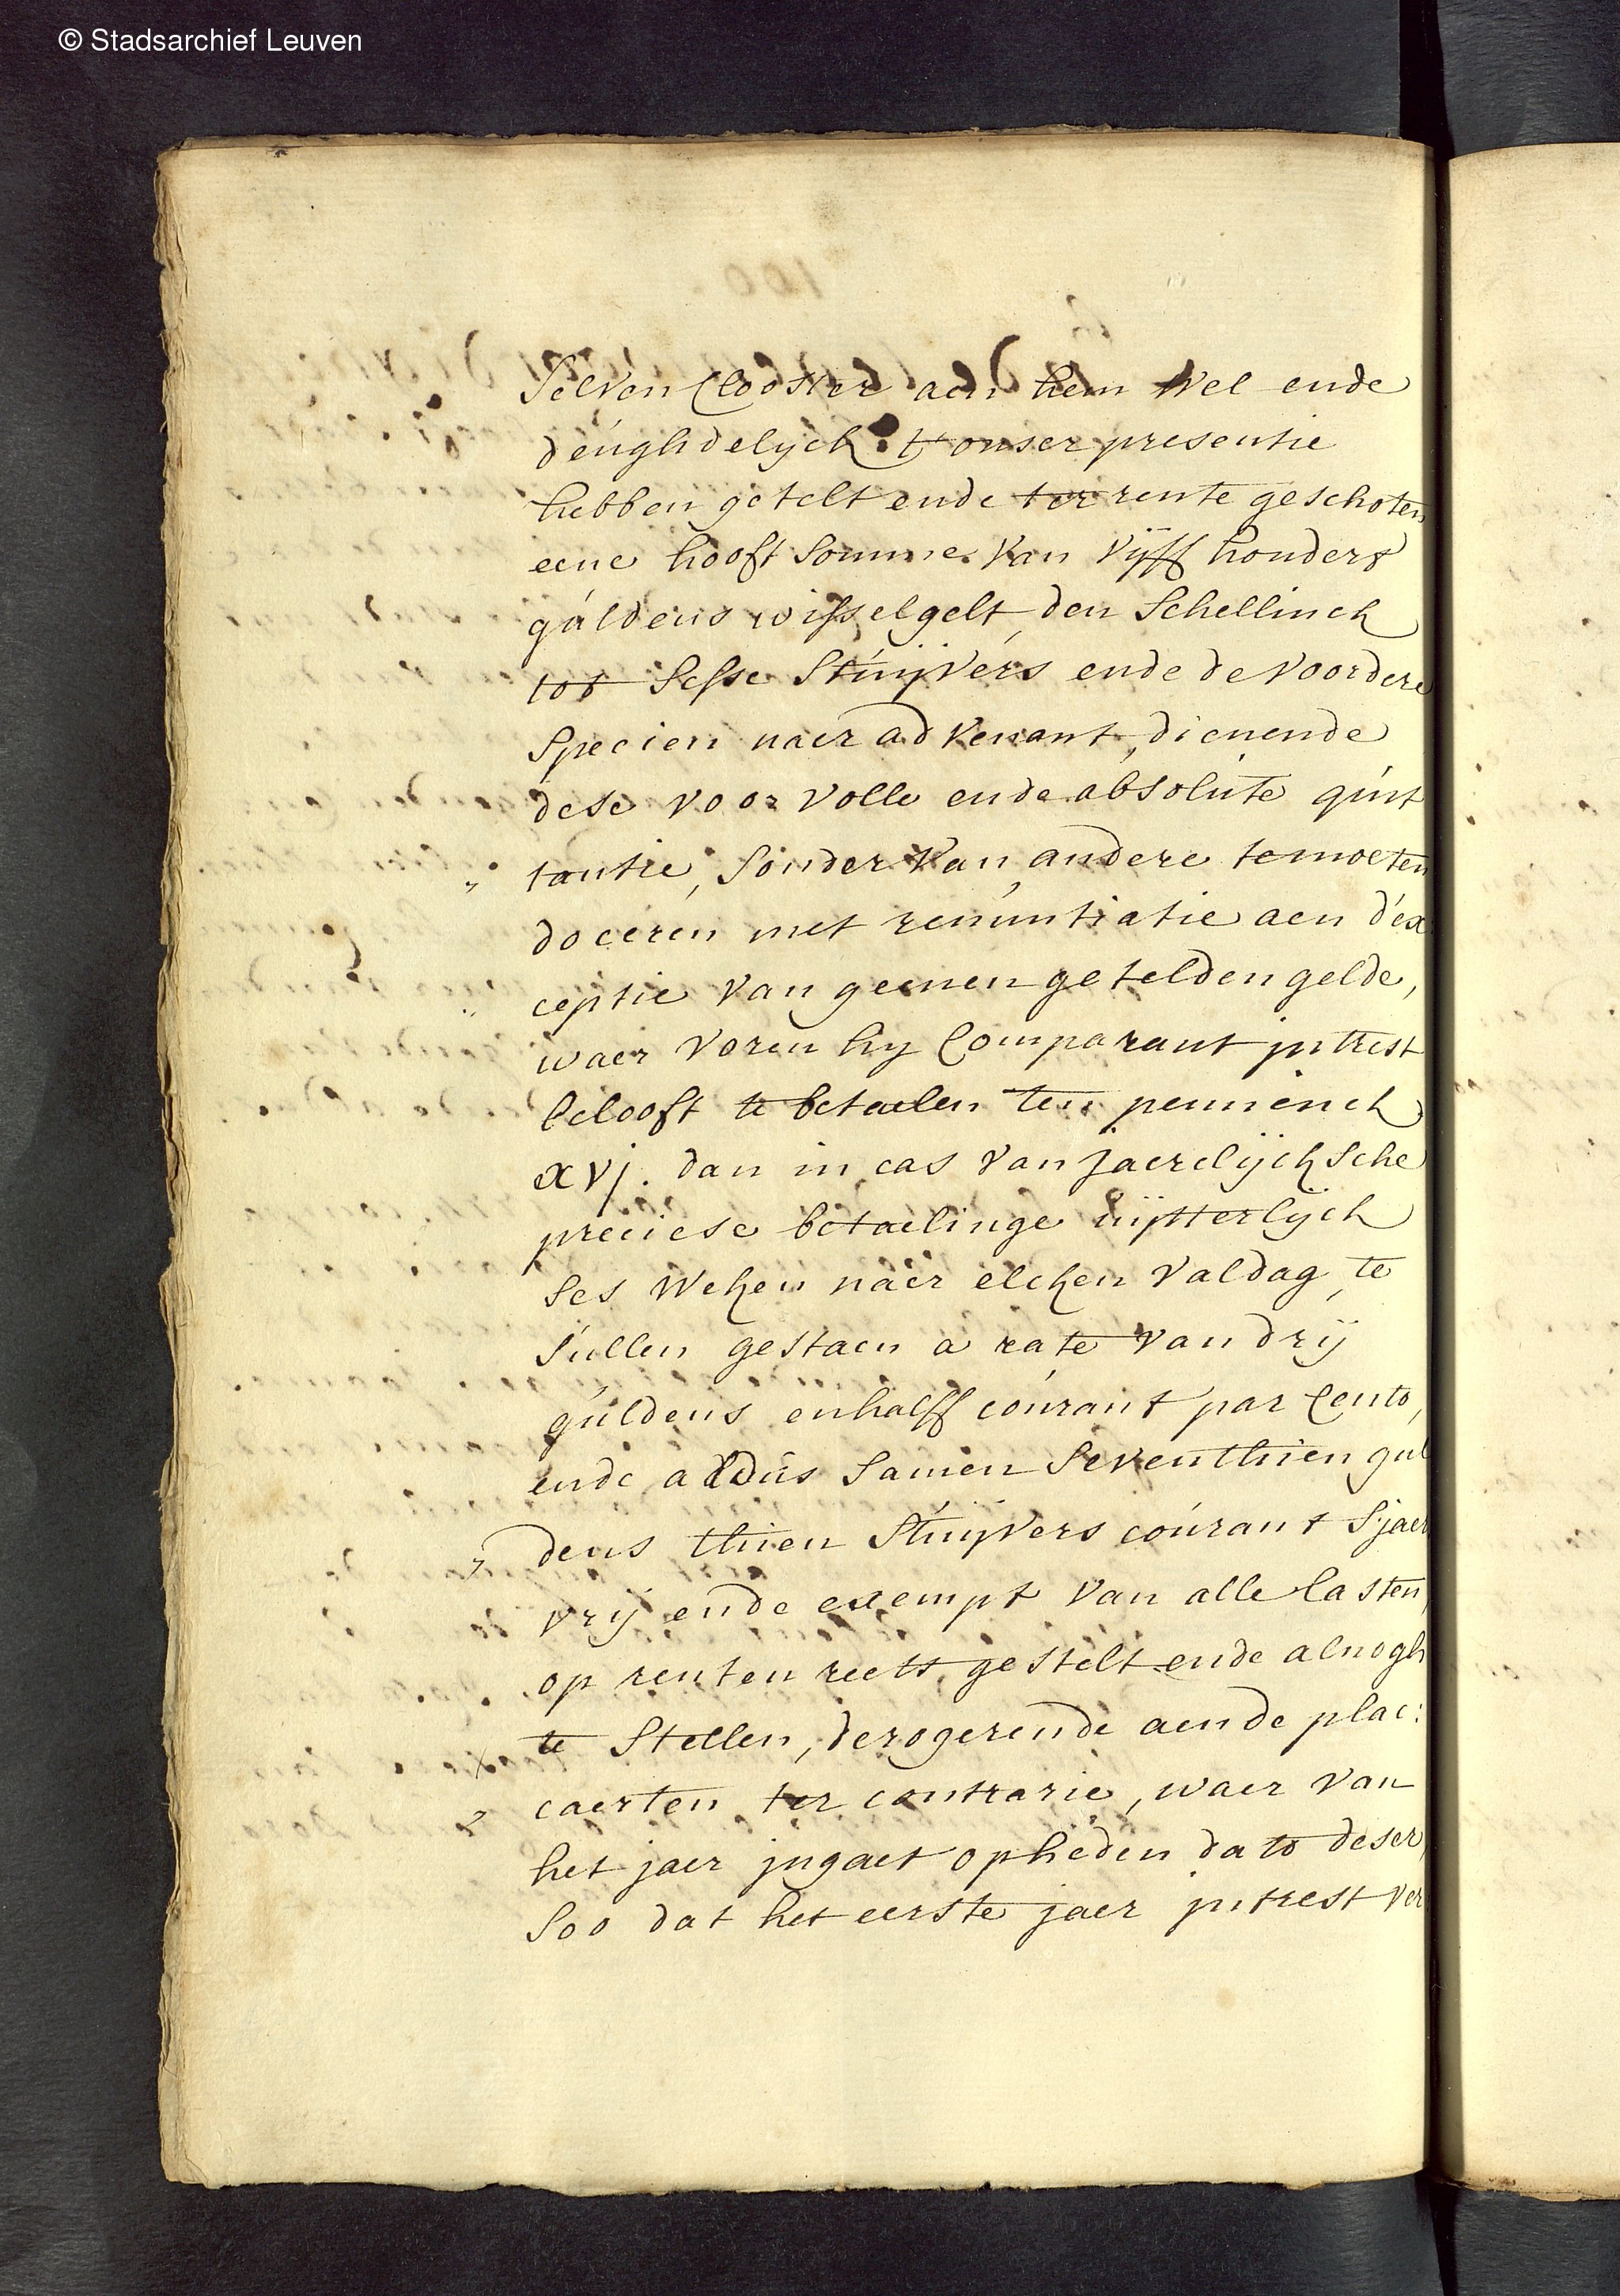 © Stadsarchief Leuven
Selven Clooster aen hem wel ende
deughdelijck t'onser presentie
hebben getelt ende ter rente geschoten
eene hooft somme van vijff hondert
guldens wisselgelt, den schellinck
tot sesse stuijvers ende de voordere
specien naer advenant, dienende
dese voor volle ende absolute quit
tantie, sonder van andere te moeten
doceren met renuntiatie aen d'ex
ceptie van geenen getelden gelde,
waer voren hy Comparant intrest
gelooft te betaelen ten penninck
xvj. dan in cas van jaerelijcksche
preciese betaelinge uijtterlijck
ses weken naer elcken valdag, te
sullen gestaen a rate van drij
guldens enhalff courant par Cento,
ende aldus samen seventhien gul
dens thien stuijvers courant s'jaers
vrij ende exempt van alle lasten,
op renten reets gestelt ende alnogh
te stellen, derogerende aen de plac:
caerten ter contrarie, waer van
het jaer ingaet op heden dato deser,
soo dat het eerste jaer intrest ver